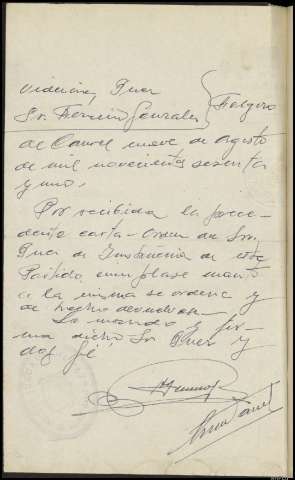 Providencia, Juez
Sr. Herrero Gonzalez } Folgoso
de Caurel nueve de Agosto
de mil novecientos sesenta
y uno.
Por recibida la prece-
dente carta-orden del Sr.
Juez de Instancia de este
Partido, cumplase cuanto
en la misma se ordena y
de hecho devuelvase.
Lo mando y fir-
ma dicho Sr. Juez y
doy fé.